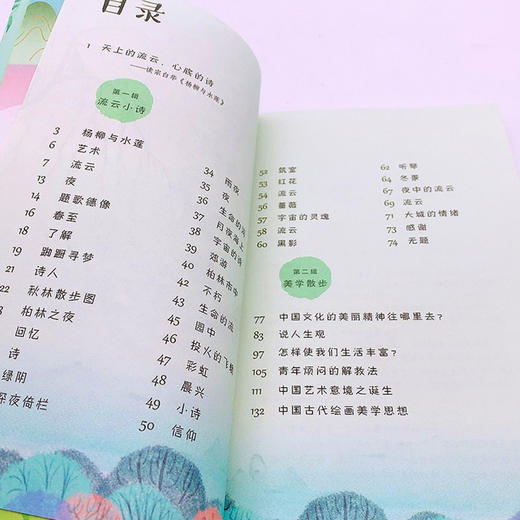 目录
1 天上的流云,心底的诗
——读宗白华《杨柳与水莲》
第一辑
流云小诗
3 杨柳与水莲
6 艺术
7 流云
13 夜
14 题歌德像
16 春至
18 了解
19 踟蹰寻梦
21 诗人
22 秋林散步图
柏林之夜
回忆
诗
绿阴
深夜倚栏
34 雨夜
35 夜
36 生命的
37 月夜海上
38 宇宙的诗
39 郊游
40 柏林市中
42 不朽
43 生命的流
45 园中
46 投火的飞蛾
47 彩虹
48 晨兴
49 小诗
50 信仰
52 筑室
53 红花
54 流云
56 蔷薇
57 宇宙的灵魂
58 流云
60 黑影
62 听琴
64 冬景
67 夜中的流云
69 流云
71 大城的情绪
73 感谢
74 无题
第二辑
美学散步
77 中国文化的美丽精神往哪里去?
83 说人生观
97 怎样使我们生活丰富?
105 青年烦闷的解救法
111 中国艺术意境之诞生
132 中国古代绘画美学思想